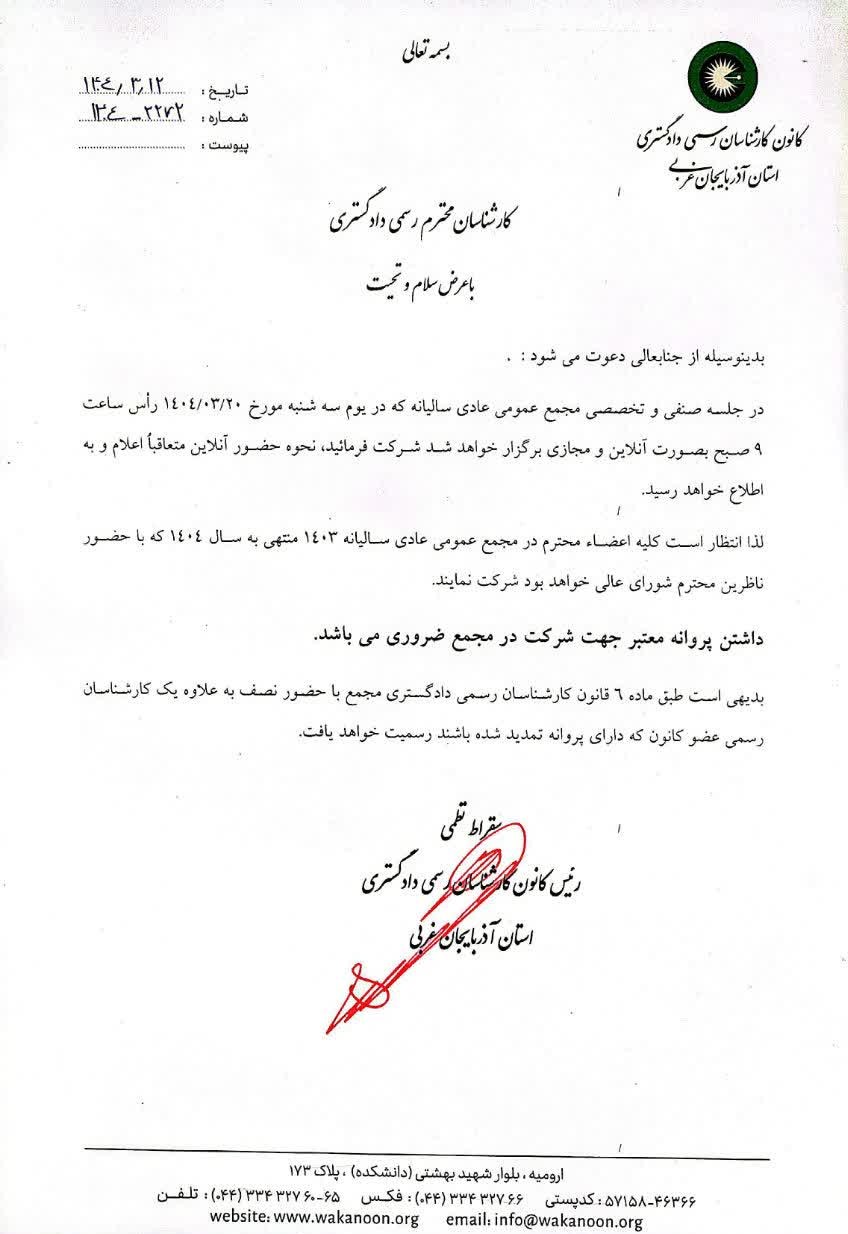 بسمه تعالی
کانون کارشناسان رسمی دادگستری
استان آذربایجان غربی
تاریخ : ۱۴۰۴/۳/۱۲
شماره : ۲۲۷۲ -
پیوست :
کارشناسان محترم رسمی دادگستری
با عرض سلام و تحیت
بدینوسیله از جنابعالی دعوت می شود : .
در جلسه صنفی و تخصصی مجمع عمومی عادی سالیانه که در یوم سه شنبه مورخ ۱٤۰٤/۰۳/۲۰ رأس ساعت
۹ صبح بصورت آنلاین و مجازی برگزار خواهد شد شرکت فرمائید، نحوه حضور آنلاین متعاقباً اعلام و به
اطلاع خواهد رسید.
لذا انتظار است کلیه اعضاء محترم در مجمع عمومی عادی سالیانه ۱٤۰۳ منتهی به سال ۱٤۰٤ که با حضور
ناظرین محترم شورای عالی خواهد بود شرکت نمایند.
داشتن پروانه معتبر جهت شرکت در مجمع ضروری می باشد.
بدیهی است طبق ماده ٦ قانون کارشناسان رسمی دادگستری مجمع با حضور نصف به علاوه یک کارشناسان
رسمی عضو کانون که دارای پروانه تمدید شده باشند رسمیت خواهد یافت.
سقراط نظمی
رئیس کانون کارشناسان رسمی دادگستری
استان آذربایجان غربی
ارومیه ، بلوار شهید بهشتی (دانشکده) ، پلاک ۱۷۳
تلفن : (۰۴۴) ۳۳۴ ۳۲۷ ۶۰-۶۵ فکس : (۰۴۴) ۳۳۴ ۳۲۷ ۶۶ کدپستی : ۵۷۱۵۸-۴۶۳۶۶
website: www.wakanoon.org email: info@wakanoon.org